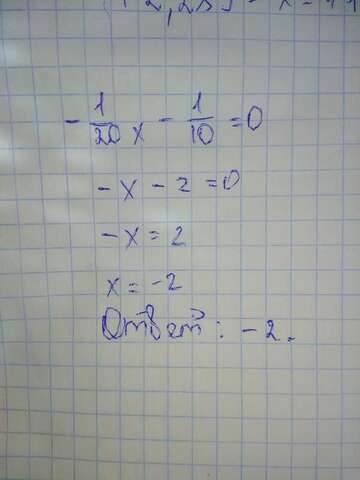 - 1/20 x - 1/10 = 0
- x - 2 = 0
- x = 2
x = -2
Ответ: -2.